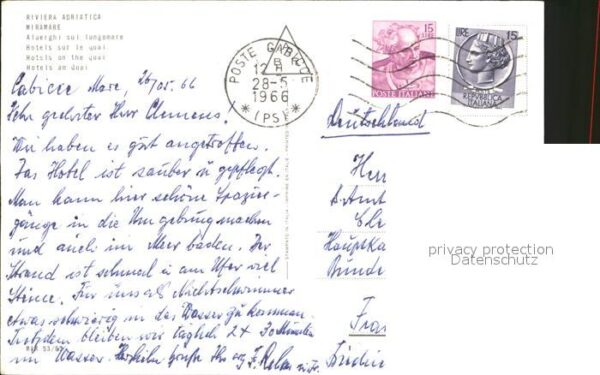 RIVIERA ADRIATICA
MIRAMARE
Alberghi sul lungomare
Hotels sur le quai
Hotels on the quai
Hotels am Quai
Cabicce Mare, 26/05. 66
Sehr geehrter Herr Clemens!
Wir haben es gut angetroffen.
Das Hotel ist sauber u. gepflegt.
Man kann hier schöne Spazier-
gänge in die Umgebung machen
und auch im Meer baden. Der
Strand ist schmal u. am Ufer viel
Steine. Für uns als Nichtschwimmer
etwas schwierig in das Wasser zu kommen.
Trotzdem bleiben wir täglich 2 x 30 Minuten
im Wasser. Herzliche Grüße Ihr
POSTE GABICCE
28-5
1966
* (PS) *
15
POSTE ITALIANE
LIRE 15
REPUBBLICA
ITALIANA
Deutschland
Herr
Haupt
privacy protection
Datenschutz